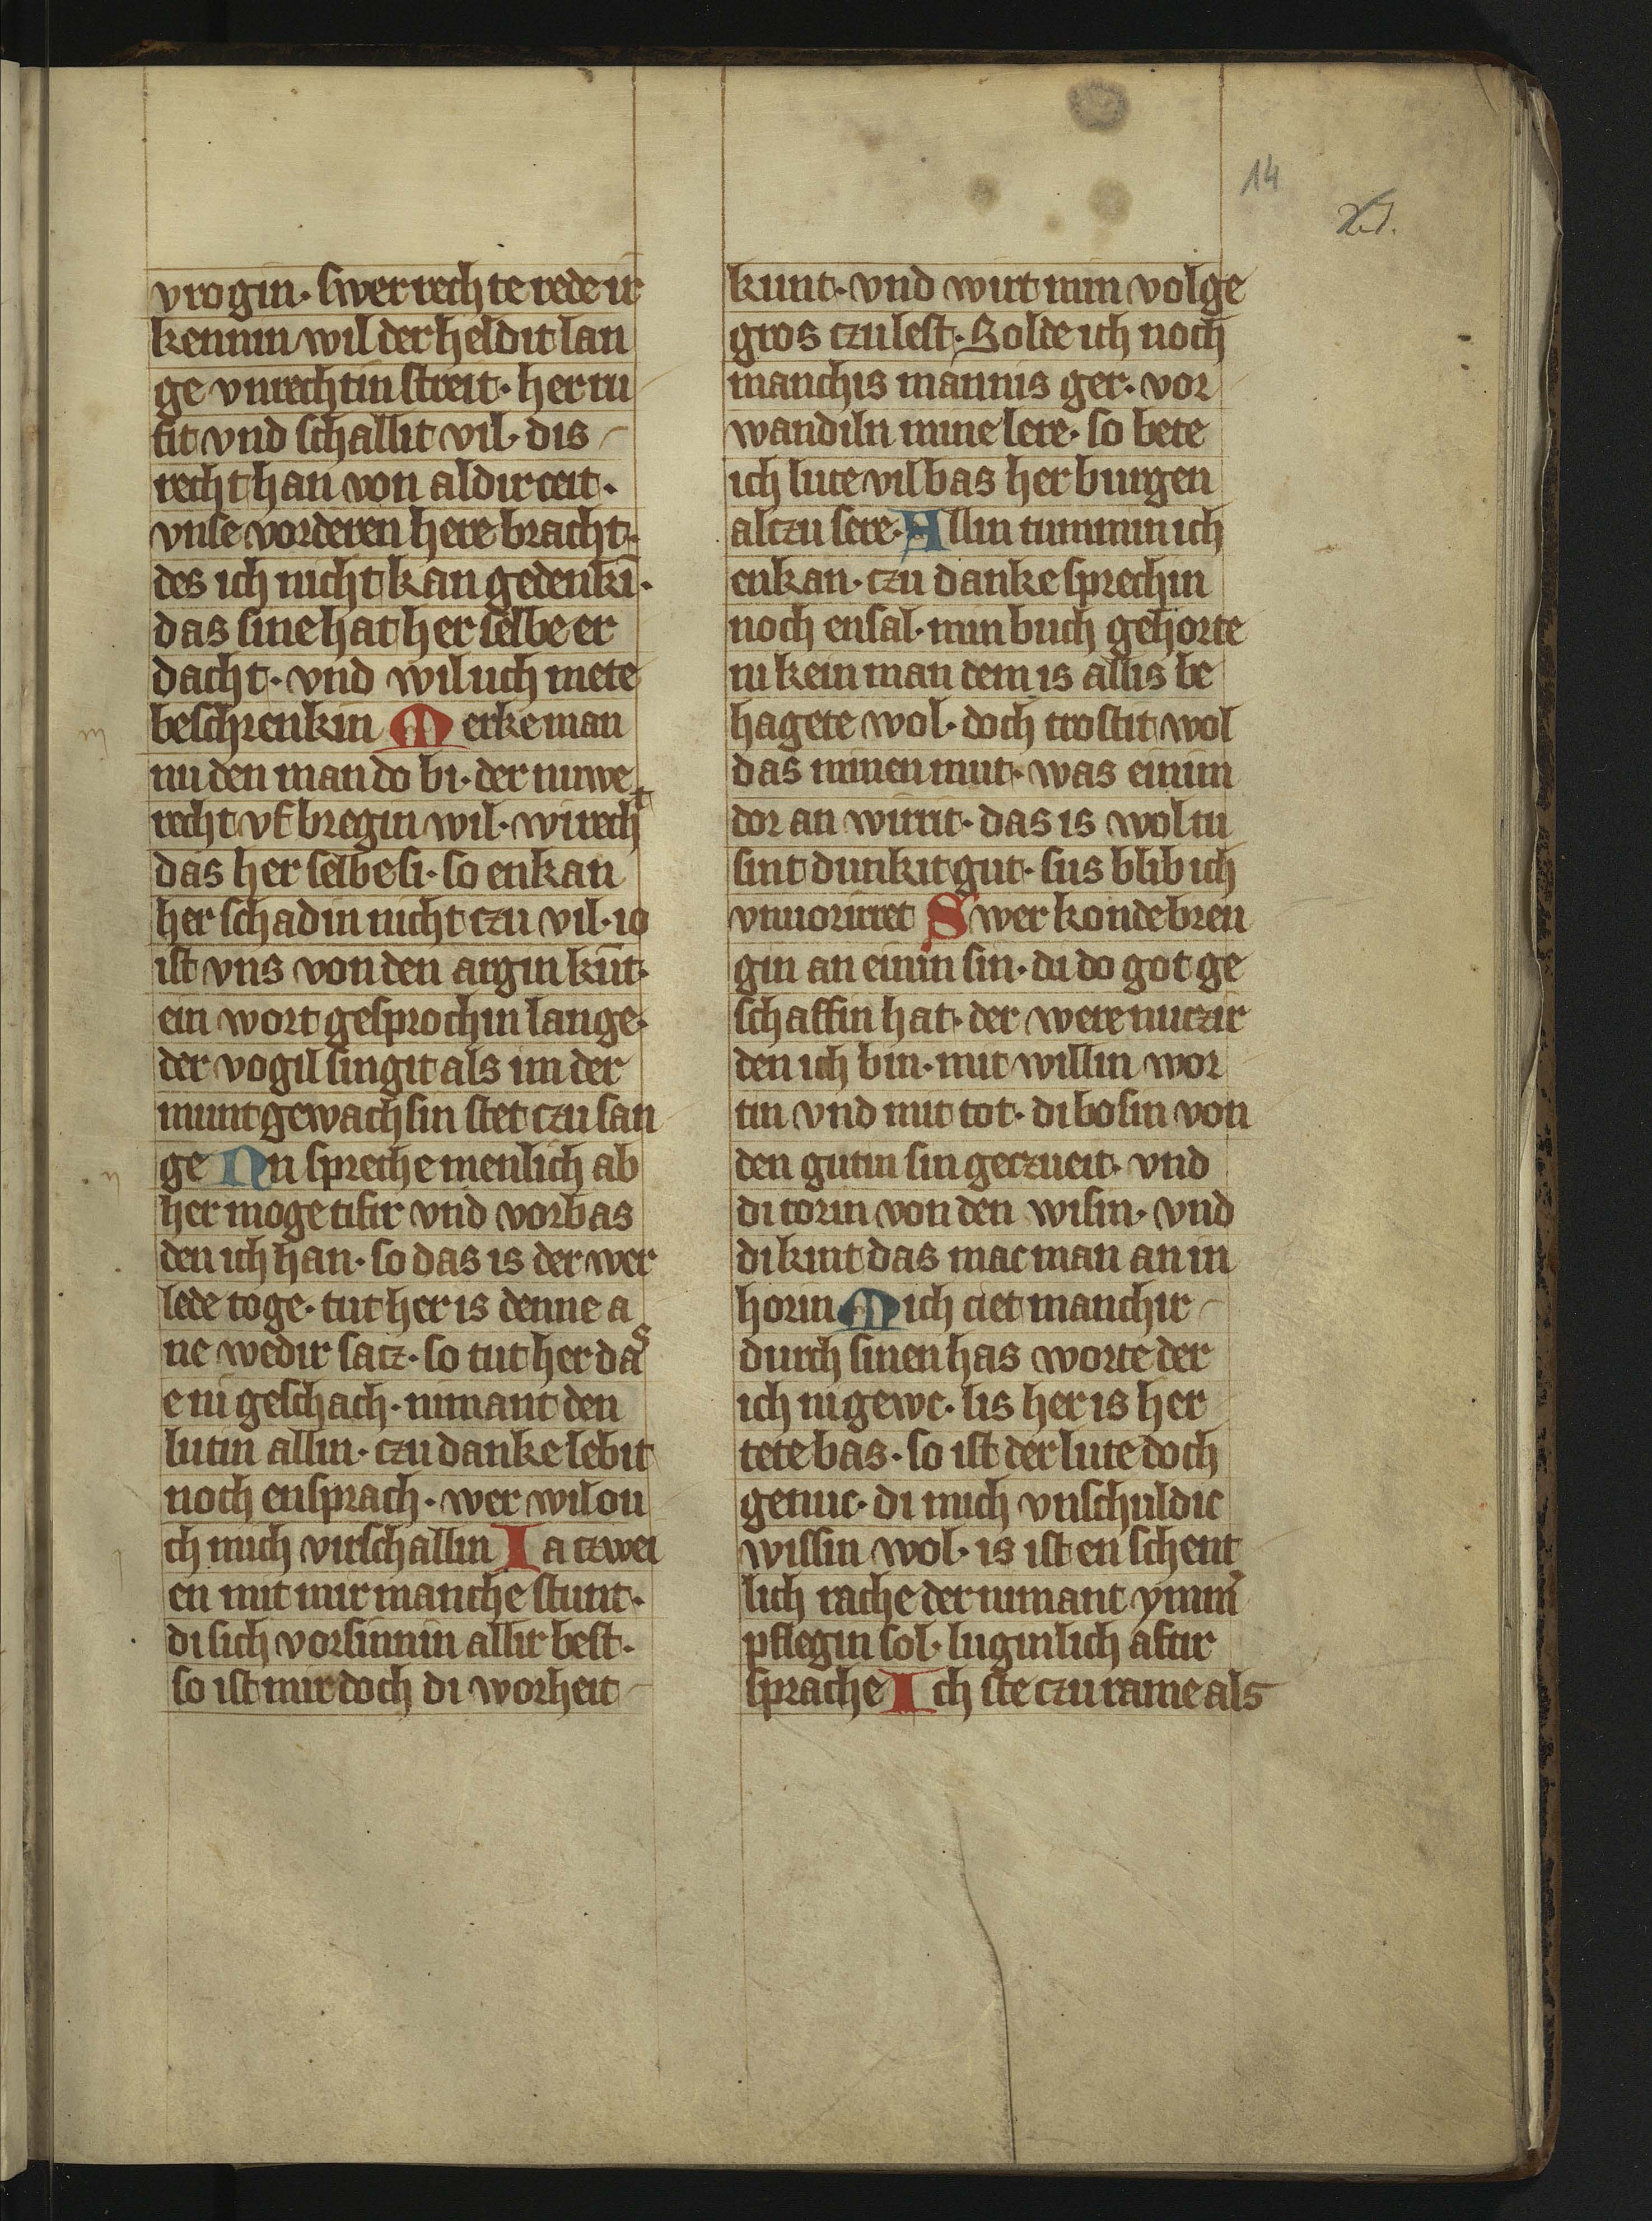 14
vrogin. swer rechte rede ir
kennin wil der heldit lan
ge vnrechtin streit. her ru
fit vnd schallit vil. dis
recht han von aldir ceit.
vnse vorderen here bracht.
des ich nicht kan gedenkī.
das sine hat her selbe er
dacht. vnd wil uch mete
beschrenkin Merke man
nu den man do bi. der nuwe
recht vf bregin wil. wirecht
das her selbe si. so enkan
her schadin nicht czu vil. io
ist vns von den argin kūt.
ein wort gesprochin lange.
der vogil singit als im der
munt gewachsin stet czu san
ge Nu spreche menlich ab
her moge tifir vnd vorbas
den ich han. so das is der wer
lede toge. tut her is denne a
ne wedir satz. so tut her das
e ni geschach. nimant den
lutin allin. czu danke lebit
noch ensprach. wer wil ou
ch mich virschallin Ia czwei
en mit mir manche stunt.
di sich vorsinnin allir best.
so ist mir doch di worheit
kunt. vnd wirt min volge
gros czu lest. Solde ich noch
manchis mannis ger. vor
wandiln mine lere. so bete
ich lute vil bas her burgen
alczu sere. Allin tummin ich
enkan. czu danke sprechin
noch ensal. min buch gehorte
ni kein man dem is allis be
hagete wol. doch trostit wol
das minen mut. was einim
dor an wirrit. das is wol tu
sint dunkit gut. sus blib ich
vnuorirret Swer konde bren
gin an einin sin. di do got ge
schaffin hat. der were nuczir
den ich bin. mit willin wor
tin vnd mit tot. di bosin von
den gutin sin geczueit. vnd
di torin von den wisin. vnd
di kint das mac man an in
horin Mich ciet manchir
durch sinen has worte der
ich ni gewc. lis her is her
tete bas. so ist der lute doch
genuc. di mich vnschuldic
wissin wol. is ist en schent
lich rache der nimant ymm̉
pflegin sol. luginlich aftir
sprache Ich ste czu rame als